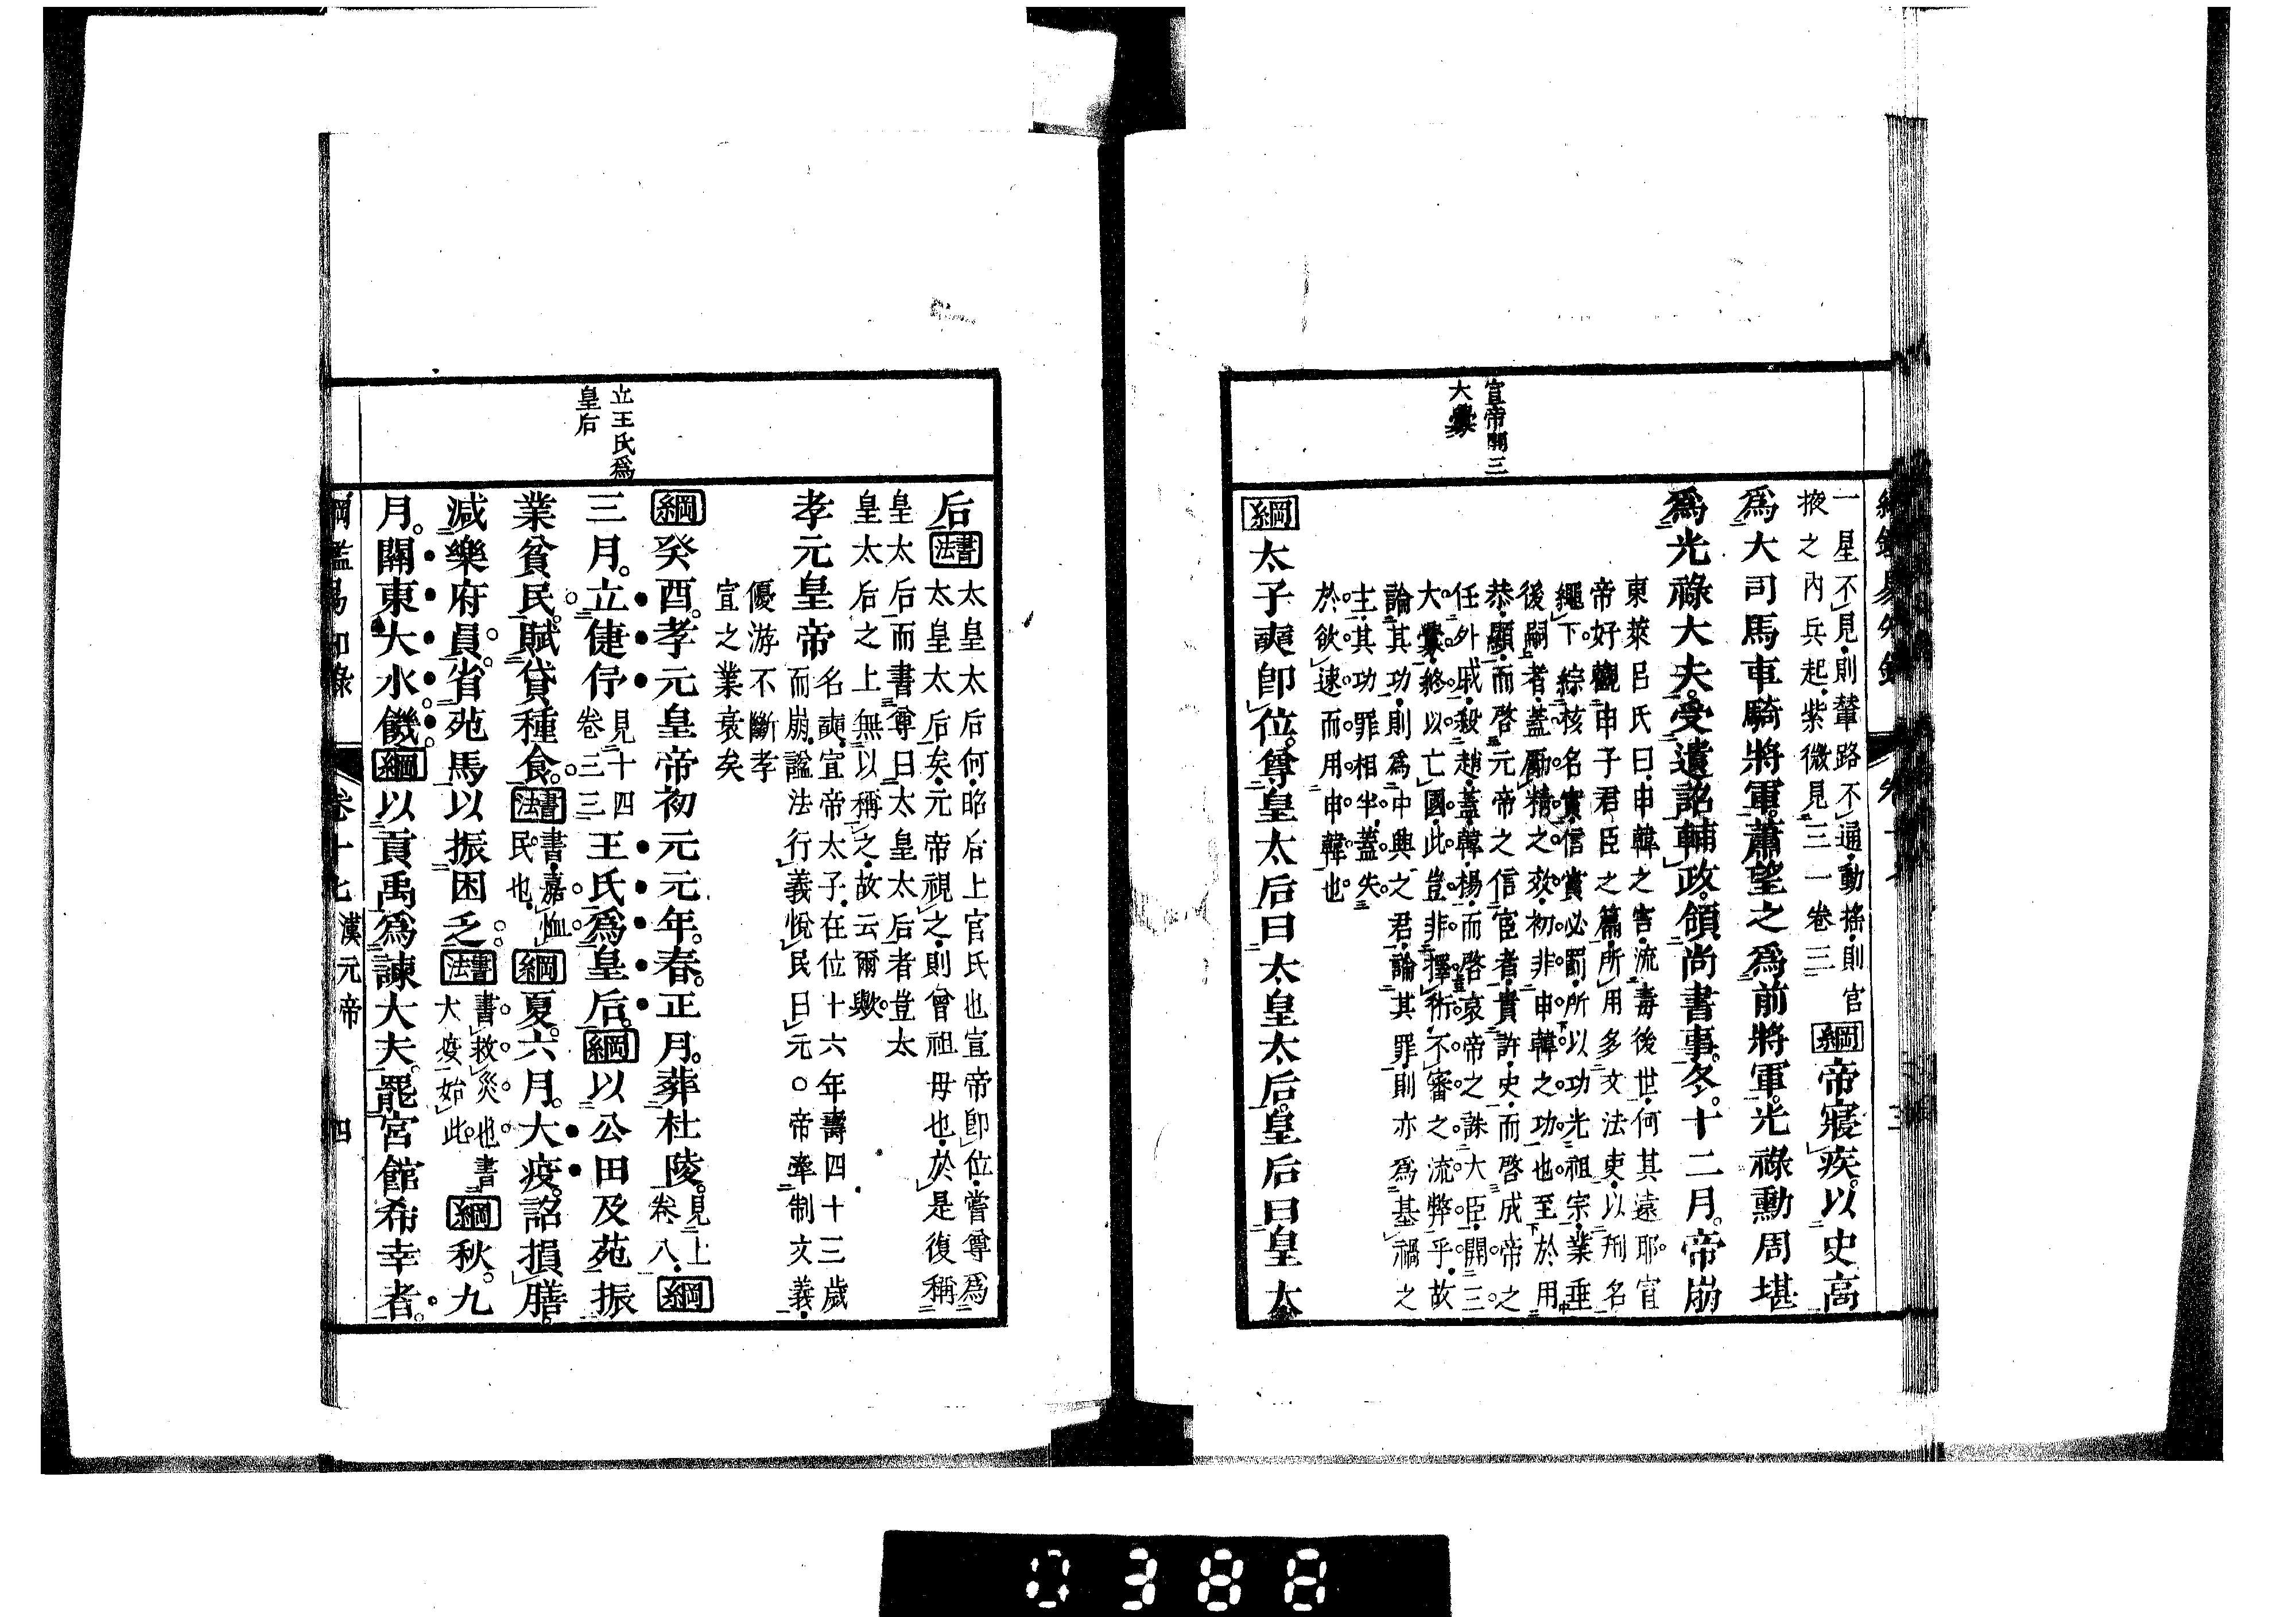 宣帝開三
大釁
一星不見則輦路不通動搖則官
掖之內兵起紫微見三一卷三
綱帝寢疾以史高
爲大司馬車騎將軍蕭望之爲前將軍光祿勳周堪
爲光祿大夫受遺詔輔政領尚書事冬十二月帝崩
東萊呂氏曰申韓之害流毒後世何其遠耶宣
帝好觀申子君臣之篇所用多文法吏以刑名
繩下綜核名實信賞必罰所以功光祖宗業垂
後嗣者蓋勵精之效初非申韓之功也至於用
恭顯而啓元帝之信宦者貴許史而啓成帝之
任外戚殺趙蓋韓楊而啓哀帝之誅大臣開三
大釁終以亡國此豈非擇術不審之流弊乎故
論其功則爲中興之君論其罪則亦爲基禍之
主其功罪相半蓋失
於欲速而用申韓也
綱太子奭卽位尊皇太后曰太皇太后皇后曰皇太
立王氏爲
皇后
后書法太皇太后何昭后上官氏也宣帝卽位嘗尊爲
太皇太后矣元帝視之則曾祖母也於是復稱
皇太后而書尊曰太皇太后者豈太
皇太后之上無以稱之故云爾歟
孝元皇帝名奭宣帝太子在位十六年壽四十三歲
而崩諡法行義悅民曰元○帝牽制文義
優游不斷孝
宣之業衰矣
綱癸酉孝元皇帝初元元年春正月葬杜陵見上
卷八綱
三月立倢伃見十四
卷三三王氏爲皇后綱以公田及苑振
業貧民賦貸種食書法書嘉恤
民也綱夏六月大疫詔損膳
減樂府員省苑馬以振困乏書法書救災也書
大疫始此綱秋九
月關東大水饑綱以貢禹爲諫大夫罷宮館希幸者
綱鑑易知錄 卷十七 漢元帝 四
0388